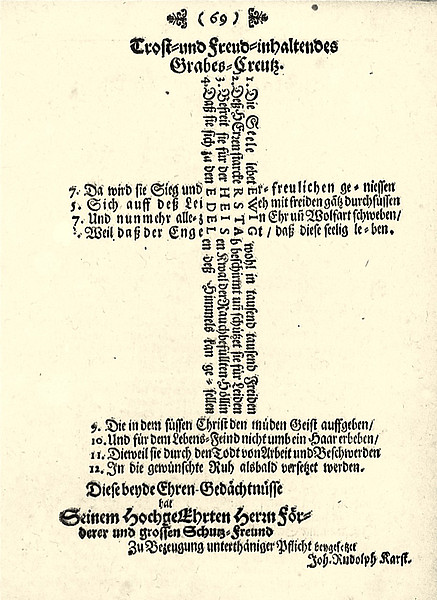 ( 69 )
Trost=und Freud=inhaltendes
Grabes=Creutz.
1. Die Seele lebet EWIG wohl in tausend tausend Freiden
2. Deß HErren starcke RSTAb beschirmt uñ schützet sie für Leiden
3. Befreit sie für der HEISen Kwal der Rauchbefüllten Höllin
4. Daß sie sich zu den EDELen deß Himmels kan ge=sellen
7. Da wird sie Sieg und freulichen ge=niessen
5. Sich auff deß Lei mit freiden gätz durchfüssen
7. Und nunmehr alle=z in Ehr uñ Wolfart schweben/
Weil daß der Enge t / daß diese seelig le=ben.
9. Die in dem süssen Christ den müden Geist auffgeben/
10. Und für dem Lebens=Feind nicht umb ein Haar erbeben/
11. Dieweil sie durch den Todt von Arbeit und Beschwerden
12. In die gewünschte Ruh alsbald versetzet werden.
Diese beyde Ehren=Gedächtnüsse
hat
Seinem HochgeEhrten Herrn För=
derer und grossen Schutz=Freund
Zu Bezeugung unterthäniger Pflicht beygesetzet
Joh. Rudolph Karst.